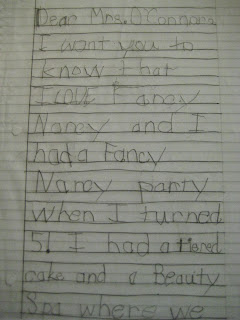 Dear Mrs. O'Connor,
I want you to
know that
I LOVE Fancy
Nancy and I
had a Fancy
Nancy party
when I turned
5! I had a tiered
cake and a Beauty
Spa where we